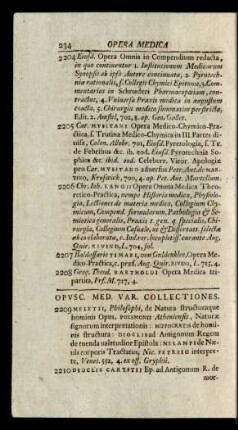 234 OPERA MEDICA
2204 Ejusd. Opera Omnia in Compendium redacta,
in quo continentur 1. Institutionum Medicarum
Synopsis ab ipso Autore continuata, 2. Pyrotech-
nia rationalis, s. Collegii Chymici Epitome, 3. Com-
mentarius in Schroederi Pharmacopœiam, con-
tractus, 4. Universa Praxis medica in angustum
coacta, 5. Chirurgia medica summatim perstricta,
Edit. 2. Amstel, 702, 8. ap. Geo. Gallet.
2205 Car. MUSITANI Opera Medico-Chymico-Pra-
ctica, s. Trutina Medico-Chymica in III. Partes di-
visa, Colon. Allobr. 701, Ejusd. Pyretologia, s. Tr.
de Febribus &c. ib. eod. Ejusd. Pyrotechnia So-
phica &c. ibid. eod. Celeberr. Viror. Apologiæ
pro Car. MUSITANO adversus Petr. Ant. de MAR-
TINO, Krusvvick, 700, 4. ap. Pet. Ant. Martellum.
2206 Chr. Joh. LANGII Opera Omnia Medica Theo-
retico-Practica, nempe Historia medica, Physiolo-
gia, Lectiones de materia medica, Collegium Chy-
micum, Compend. formularum, Pathologia & Se-
miotica generalis, Praxis s. gen. q. specialis, Chi-
rurgia, Collegium Casuale, nec & Dissertatt. selectæ
ab eo elaboratæ, c. Ind. rer. locupletiss. curante Aug.
Quir. RIVINO, L. 704, fol.
2207 Baldassaris TIMÆI, von Guldenklee, Opera Me-
dico-Practica, c. præf. Aug. Quir. RIVINI, L. 715, 4.
2208 Georg. Theod. BARTHOLDI Opera Medica tri-
partita, Frf. M. 717, 4.
OPVSC. MED. VAR. COLLECTIONES.
2209 MELETII, Philosophi, de Natura structuraque
hominis Opus. POLEMONIS Atheniensis, Naturæ
signorum interpretationis: HIPPOCRATIS de homi-
nis structura: DIOCLIS ad Antigonum Regem
de tuenda valetudine Epistola: MELAMPI de Næ-
vis corporis Tractatus, Nic. PETREIO interpre-
te, Venet. 552, 4. ex off. Gryphii.
2210 DIOCLIS CARYSTII Ep. ad Antigonum R. de
mor-